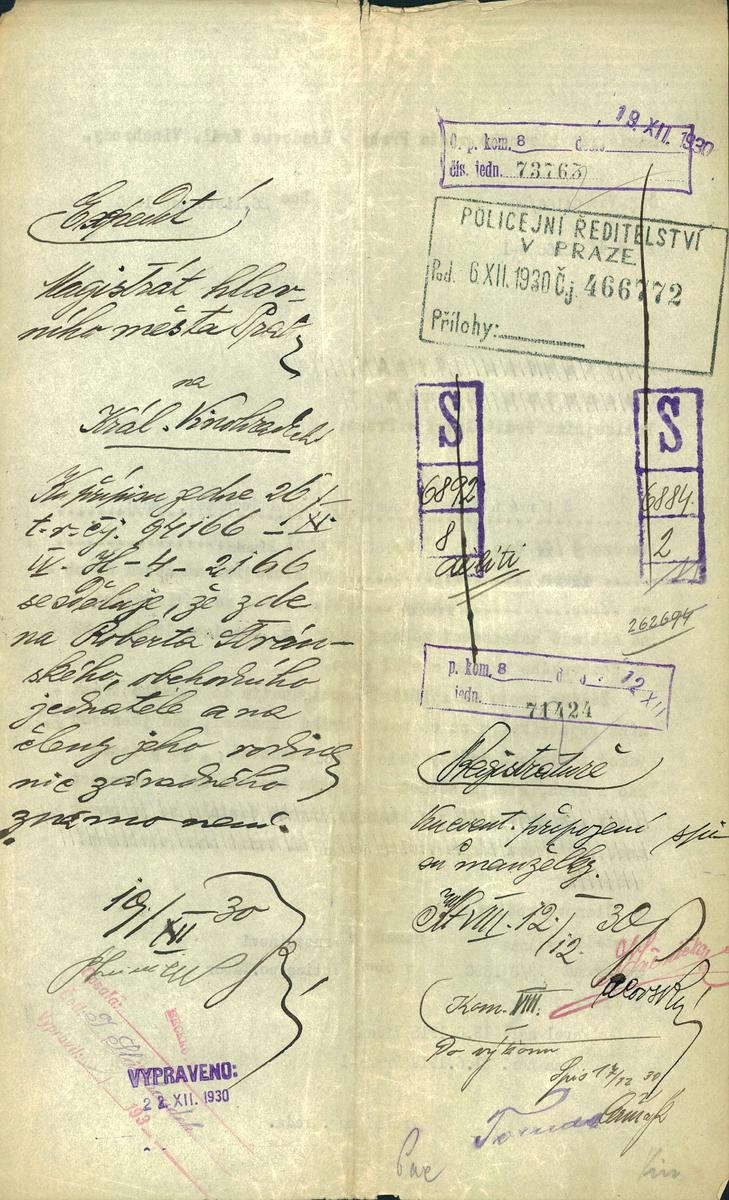 Expedit
Magistrát hlav-
ního města Prahy
na
Král. Vinohradech
Ku přípisu ze dne 26/XI
t. r. čj. 94166 –
IV - H - 4 - 2166
se sděluje, že zde
na Roberta Strán-
ského, obchodního
jednatele a na
členy jeho rodiny
nic závadného
známo není.
19/XII 30
Opsala:
Vypravila:
193
VYPRAVENO:
22 XII. 1930
19. XII. 1930
O. p. kom. 8
čís. jedn. 73763
POLICEJNÍ ŘEDITELSTVÍ
V PRAZE
Pod. 6.XII.1930 Čj. 466772
Přílohy:
S
6892
8
S
6884
2
děliti
262694
p. kom. 8 12 XII
jedn. 71424
Registratuře
Ku event. připojení spi-
su manželky.
VIII. 12/12. 30
Kom. VIII.
Po výkonu
Spis 17/12 30